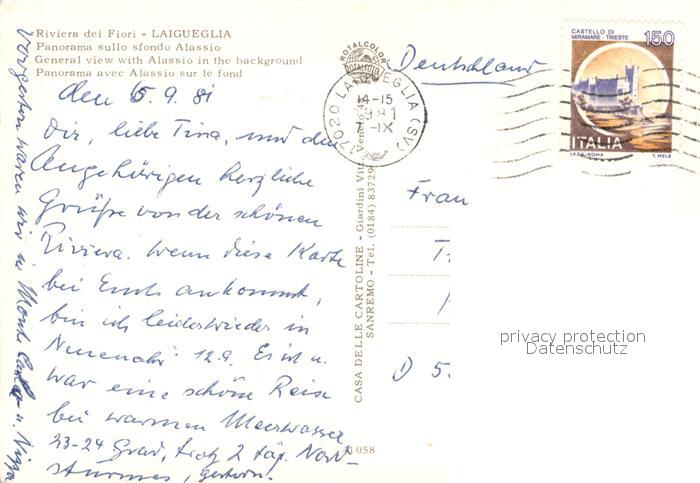 Riviera dei Fiori - LAIGUEGLIA
Panorama sullo sfondo Alassio
General view with Alassio in the background
Panorama avec Alassio sur le fond
den 6.9.81
Dir, liebe Tina, und den
Angehörigen herzliche
Grüße von der schönen
Riviera. Wenn diese Karte
bei Euch ankommt,
bin ich leider wieder in
Neuenahr 12.9. Es ist u.
war eine schöne Reise
bei warmen Meerwasser
23-24 Grad, trotz 2 täg. Nord-
sturmes, gestern.
Vorgestern waren wir in Monte Carlo u. Nizza
ROTALCOLOR
CASA DELLE CARTOLINE - Giardini Vitt. Veneto
SANREMO - Tel. (0184) 83729
058
17020 LAIGUEGLIA (SV)
14-15
1981
IX
Deutschland
Frau
D 5
CASTELLO DI
MIRAMARE - TRIESTE
150
ITALIA
I.P.Z.S. - ROMA
T. MELE
privacy protection
Datenschutz